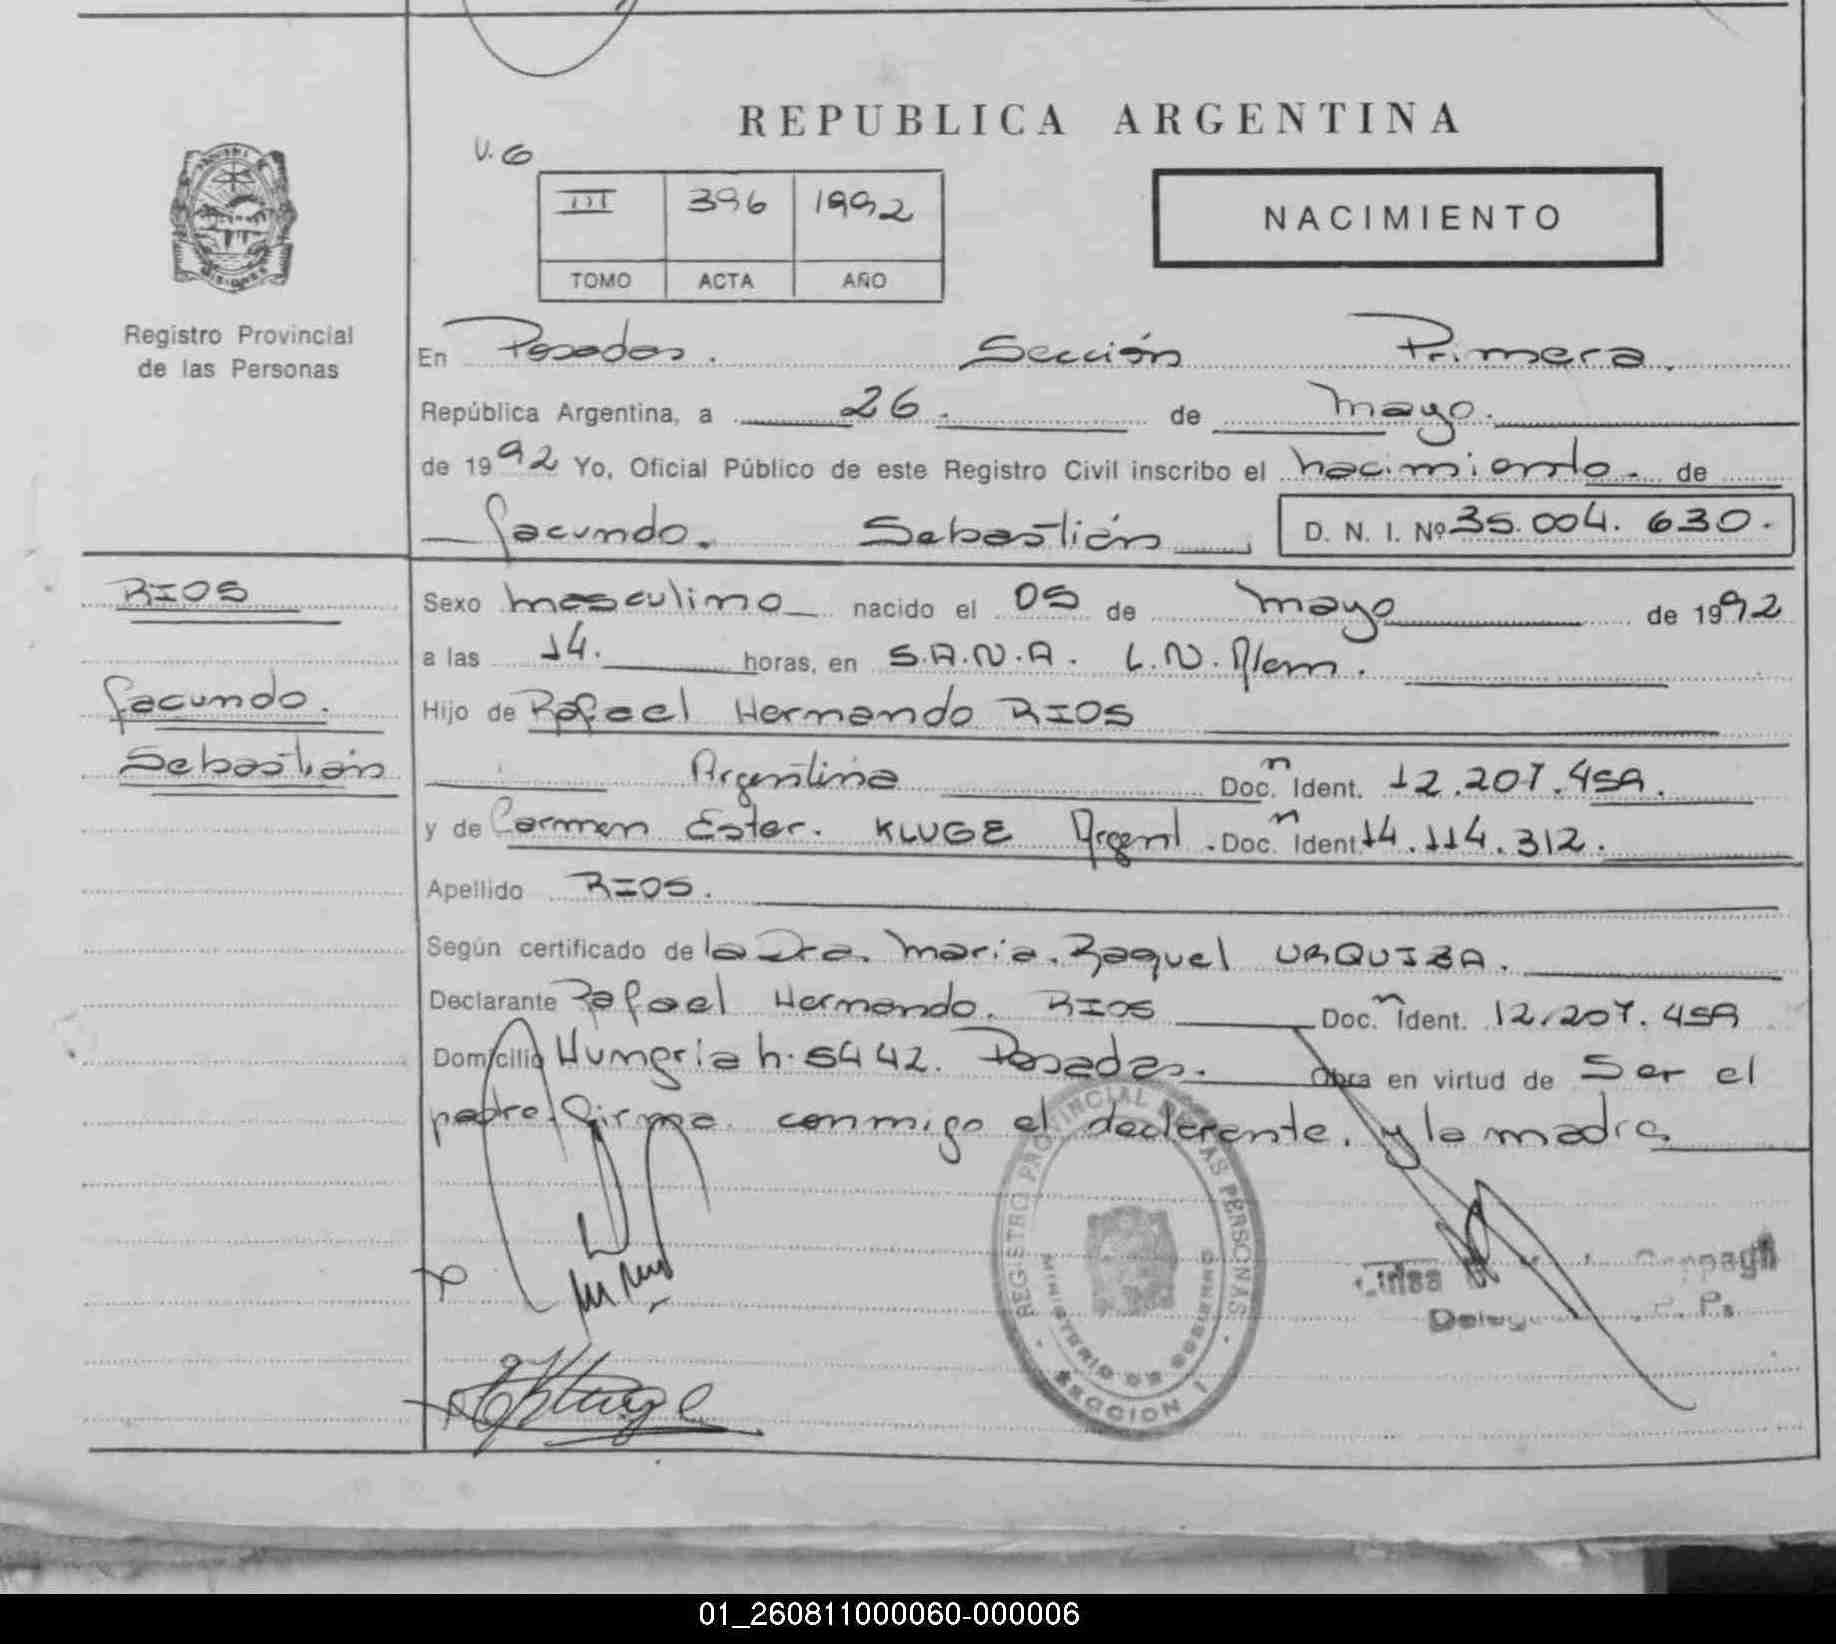 REPUBLICA ARGENTINA
V. G
III 396 1992
TOMO ACTA AÑO
NACIMIENTO
Registro Provincial
de las Personas
En Posadas. Sección Primera.
República Argentina, a 26. de mayo.
de 1992 Yo, Oficial Público de este Registro Civil inscribo el nacimiento. de
Facundo. Sebastián D. N. I. Nº 35.004.630.
RIOS
Facundo.
Sebastián
Sexo masculino nacido el 05 de mayo de 1992
a las 14. horas, en S.A.N.A. L.N. Alem.
Hijo de Rafael Hernando RIOS
Argentina Doc.n Ident. 12.207.459.
y de Carmen Ester. KLUGE Argent. Doc.n Ident. 14.114.312.
Apellido RIOS.
Según certificado de la Dra. Maria. Raquel URQUIZA.
Declarante Rafael Hernando. RIOS Doc.n Ident. 12.207.459
Domicilio Hungria n. 5442. Posadas. Obra en virtud de Ser el
padre. Firma conmigo el declarante. y la madre
REGISTRO PROVINCIAL DE LAS PERSONAS
MINISTERIO DE GOBIERNO
SECCION 1
Kluge
01_260811000060-000006